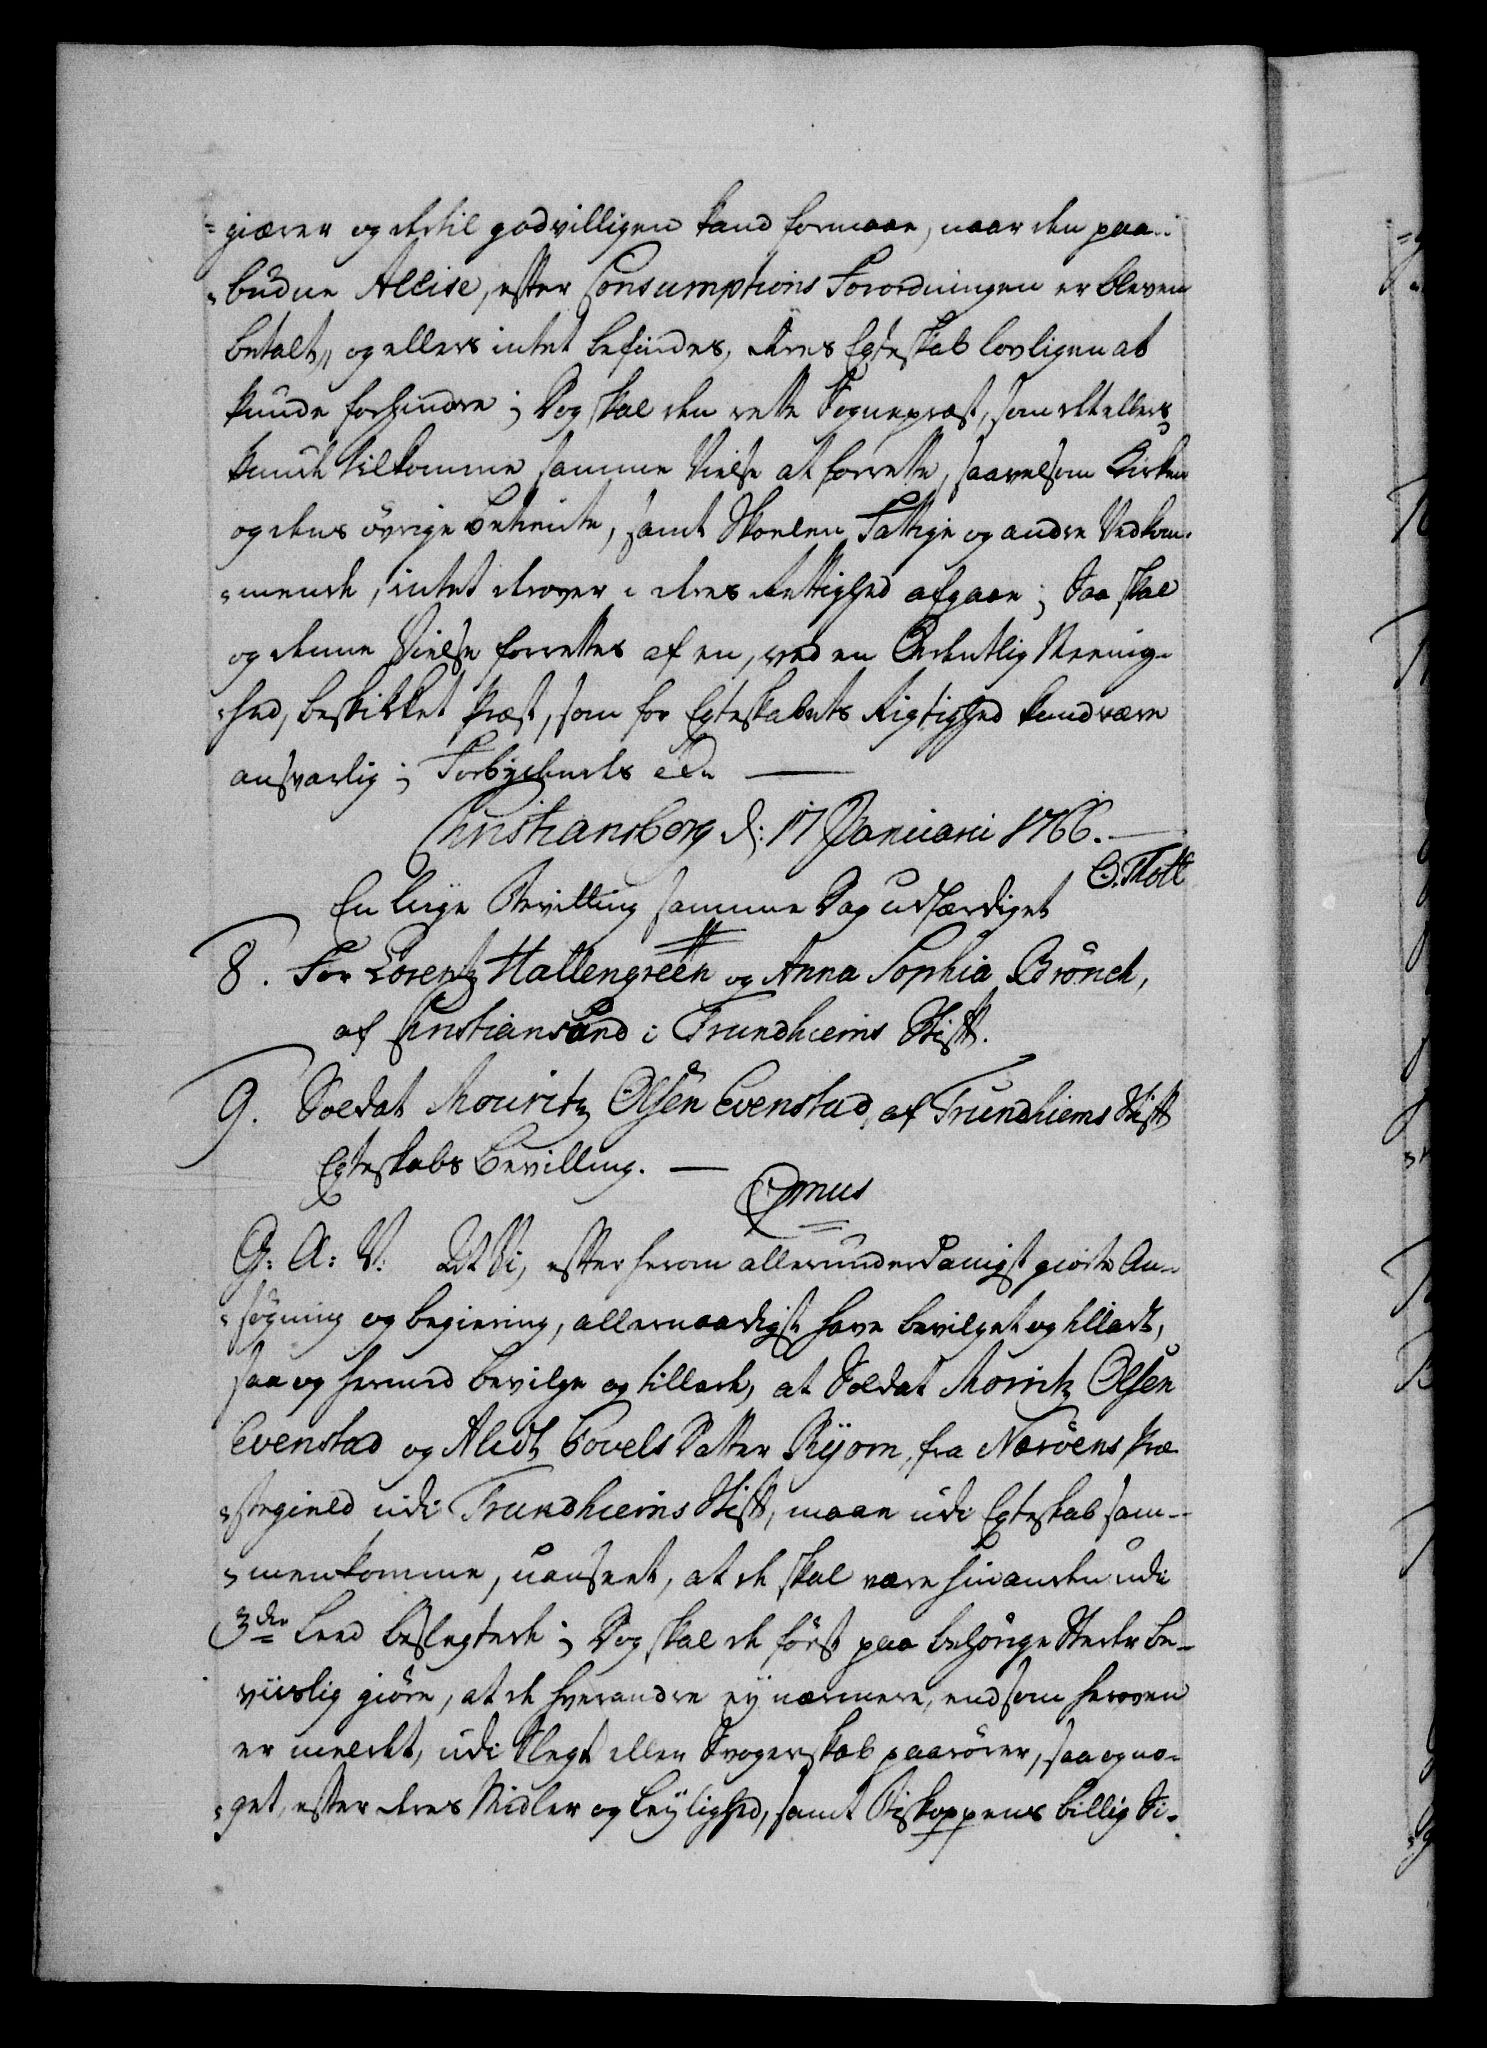 =giærer og dertil godvilligen kand formaae, naar den paa-
=budne Accise, efter Consumptions Forordningen er bleven
betalt, og ellers intet befindes, deres Egteskab lovligen at
kunde forhindre; Dog skal den rette Sognepræst, som det ellers
kunde tilkomme samme Vielse at forrette, saavelsom Kirken
og dens övrige betiente, samt Skolen, Fattige og andre Vedkom-
=mende, intet derover i deres Rettighed afgaae; Saa skal
og denne Vielse forrettes af en, ved en Ordentlig Meenig-
=hed, beskikket Præst, som for Egteskabets Rigtighed kand være
ansvarlig; Forbydendes etc. —
Christiansborg d: 17 Januarii 1766. —
O. Thott
En lige Bevilling samme Dag udfærdiget
8. For Lorentz Hallengreen og Anna Sophia Brönch,
af Christiansund i Trundhiems Stift.
9. Soldat Mouritz Olsen Evenstad, af Trundhiems Stift
Egteskabs Bevilling. —
G: A: V: At Vi, efter herom allerunderdanigst giorte An-
=sögning og begiering, allernaadigst have bevilget og tilladt,
saa og hermed bevilge og tillade, at Soldat Moritz Olsen
Evenstad og Aledt Povels Datter Ryom, fra Næröens Præ-
=stegield udi Trundhiems Stift, maae udi Egteskab sam-
=menkomme, uanseet, at de skal være hinanden udi
3die Leed beslegtede; Dog skal de först paa behörige Steder be-
viislig giöre, at de hverandre ey nærmere, end som heroven
er meldt, udi Slegt eller Svogerskab paarörer, saa og no-
=get, efter deres Midler og Leylighed, samt Biskoppens billig Si-